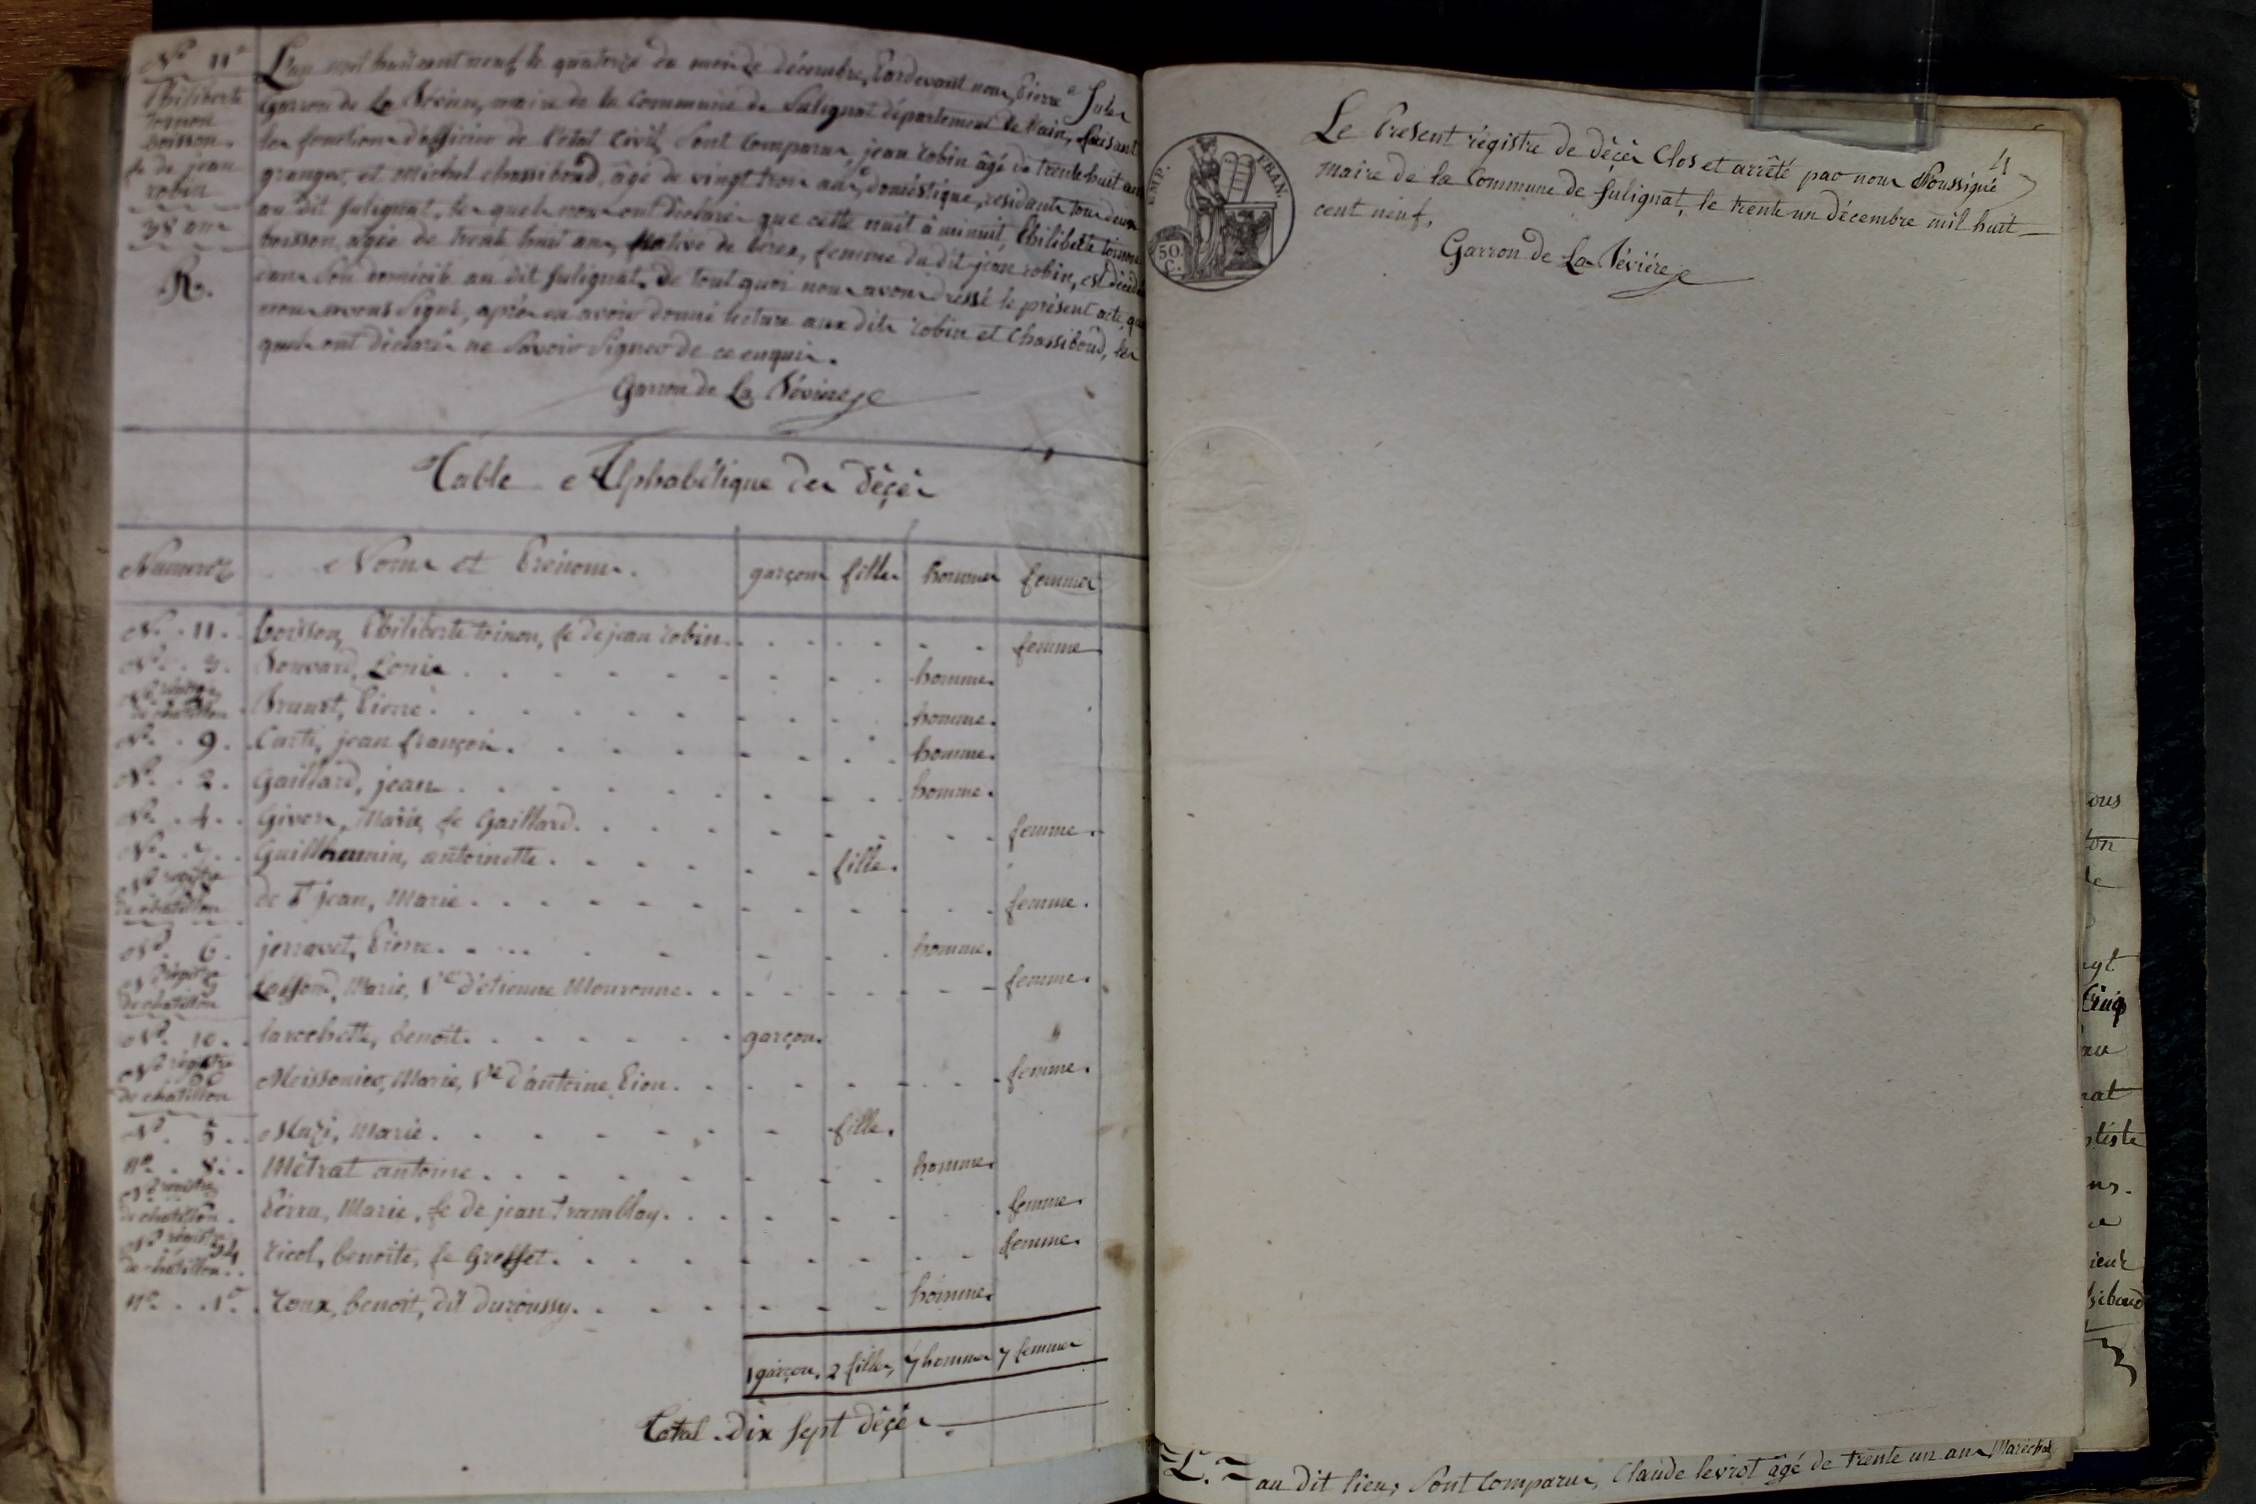 N° 11e
Philiberte
toinon
boisson,
fe de jean
robin
38 ans
R.
L'an mil huit cent neuf le quatorze du mois de décembre, Pardevant nous, Pierre Jules
Garron de La Bévière, maire de la commune de Sulignat département de l'ain, faisant
les fonctions d'officier de l'état Civil, Sont Comparus, jean robin âgé de trente huit ans
granger, et Michel chassiboud, âgé de vingt trois ans, doméstique, résidants tous deux
au dit Sulignat, les quels nous ont déclarés que cette nuit à minuit, Philiberte toinon
boisson, agée de trente huit ans, Native de femme du dit jean robin, est décédée
dans Son domicile au dit Sulignat. De tout quoi nous avons dressé le présent acte, que
nous avons Signé, après en avoir donné lecture aux dits robin et Chassiboud, les
quels ont déclarés ne Savoir Signer de ce enquis.
Garron de La Bévière
Table Alphabétique des décès
Numeros Noms et Prénoms. garçons filles hommes femmes
N°. 11. boisson, Philiberte toinon, fe de jean robin. femme
N°. 3. Bouvard, Louis homme.
N° régistre de chatillon Brunet, Pierre. homme.
N°. 9. Carte, jean françois. homme.
N°. 2. Gaillard, jean homme.
N°. 4. Givors, Marie, fe Gaillard. femme.
N°. 7. Guillhaumin, antoinette. fille.
N° régistre de chatillon de St jean, Marie. femme.
N°. 6. jerravet, Pierre. homme.
N° régistre de chatillon Marie, Ve d'étienne Mouronne. femme.
N°. 10. larochette, benoit. garçon. "
N° régistre de chatillon Meissonier, Marie, Ve d'antoine Pion. femme.
N°. 5. Mazi, Marie. fille.
n°. 8. Métrat antoine. homme.
N° régistre de chatillon. Perra, Marie, fe de jean Tramblay. femme.
N° régistre 34 de chatillon. ricol, benoite, fe Grosset. femme.
n°. 1er. roux, benoit, dit duroussy. homme.
1 garçon. 2 filles, 7 hommes 7 femmes
Total. Dix Sept décès.
EMP. FRAN.
50.
C.
4
Le Présent régistre de décès Clos et arrêté par nous Soussigné
maire de la Commune de Sulignat, le trente un décembre mil huit
cent neuf.
Garron de La Bévière
ous
ton
le
ngt
Cinq
nat
tiste
ns.
ieux
siboud
au dit lieu, Sont Comparus, Claude levrot âgé de trente un ans Maréchal